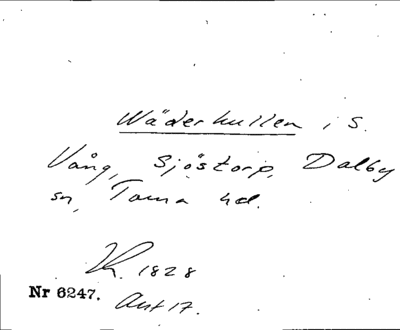 Wäderkullen i S.
Vång, Sjöstorp, Dalby
sn, Torna hd.
1828
Nr 6247. Akt 17.